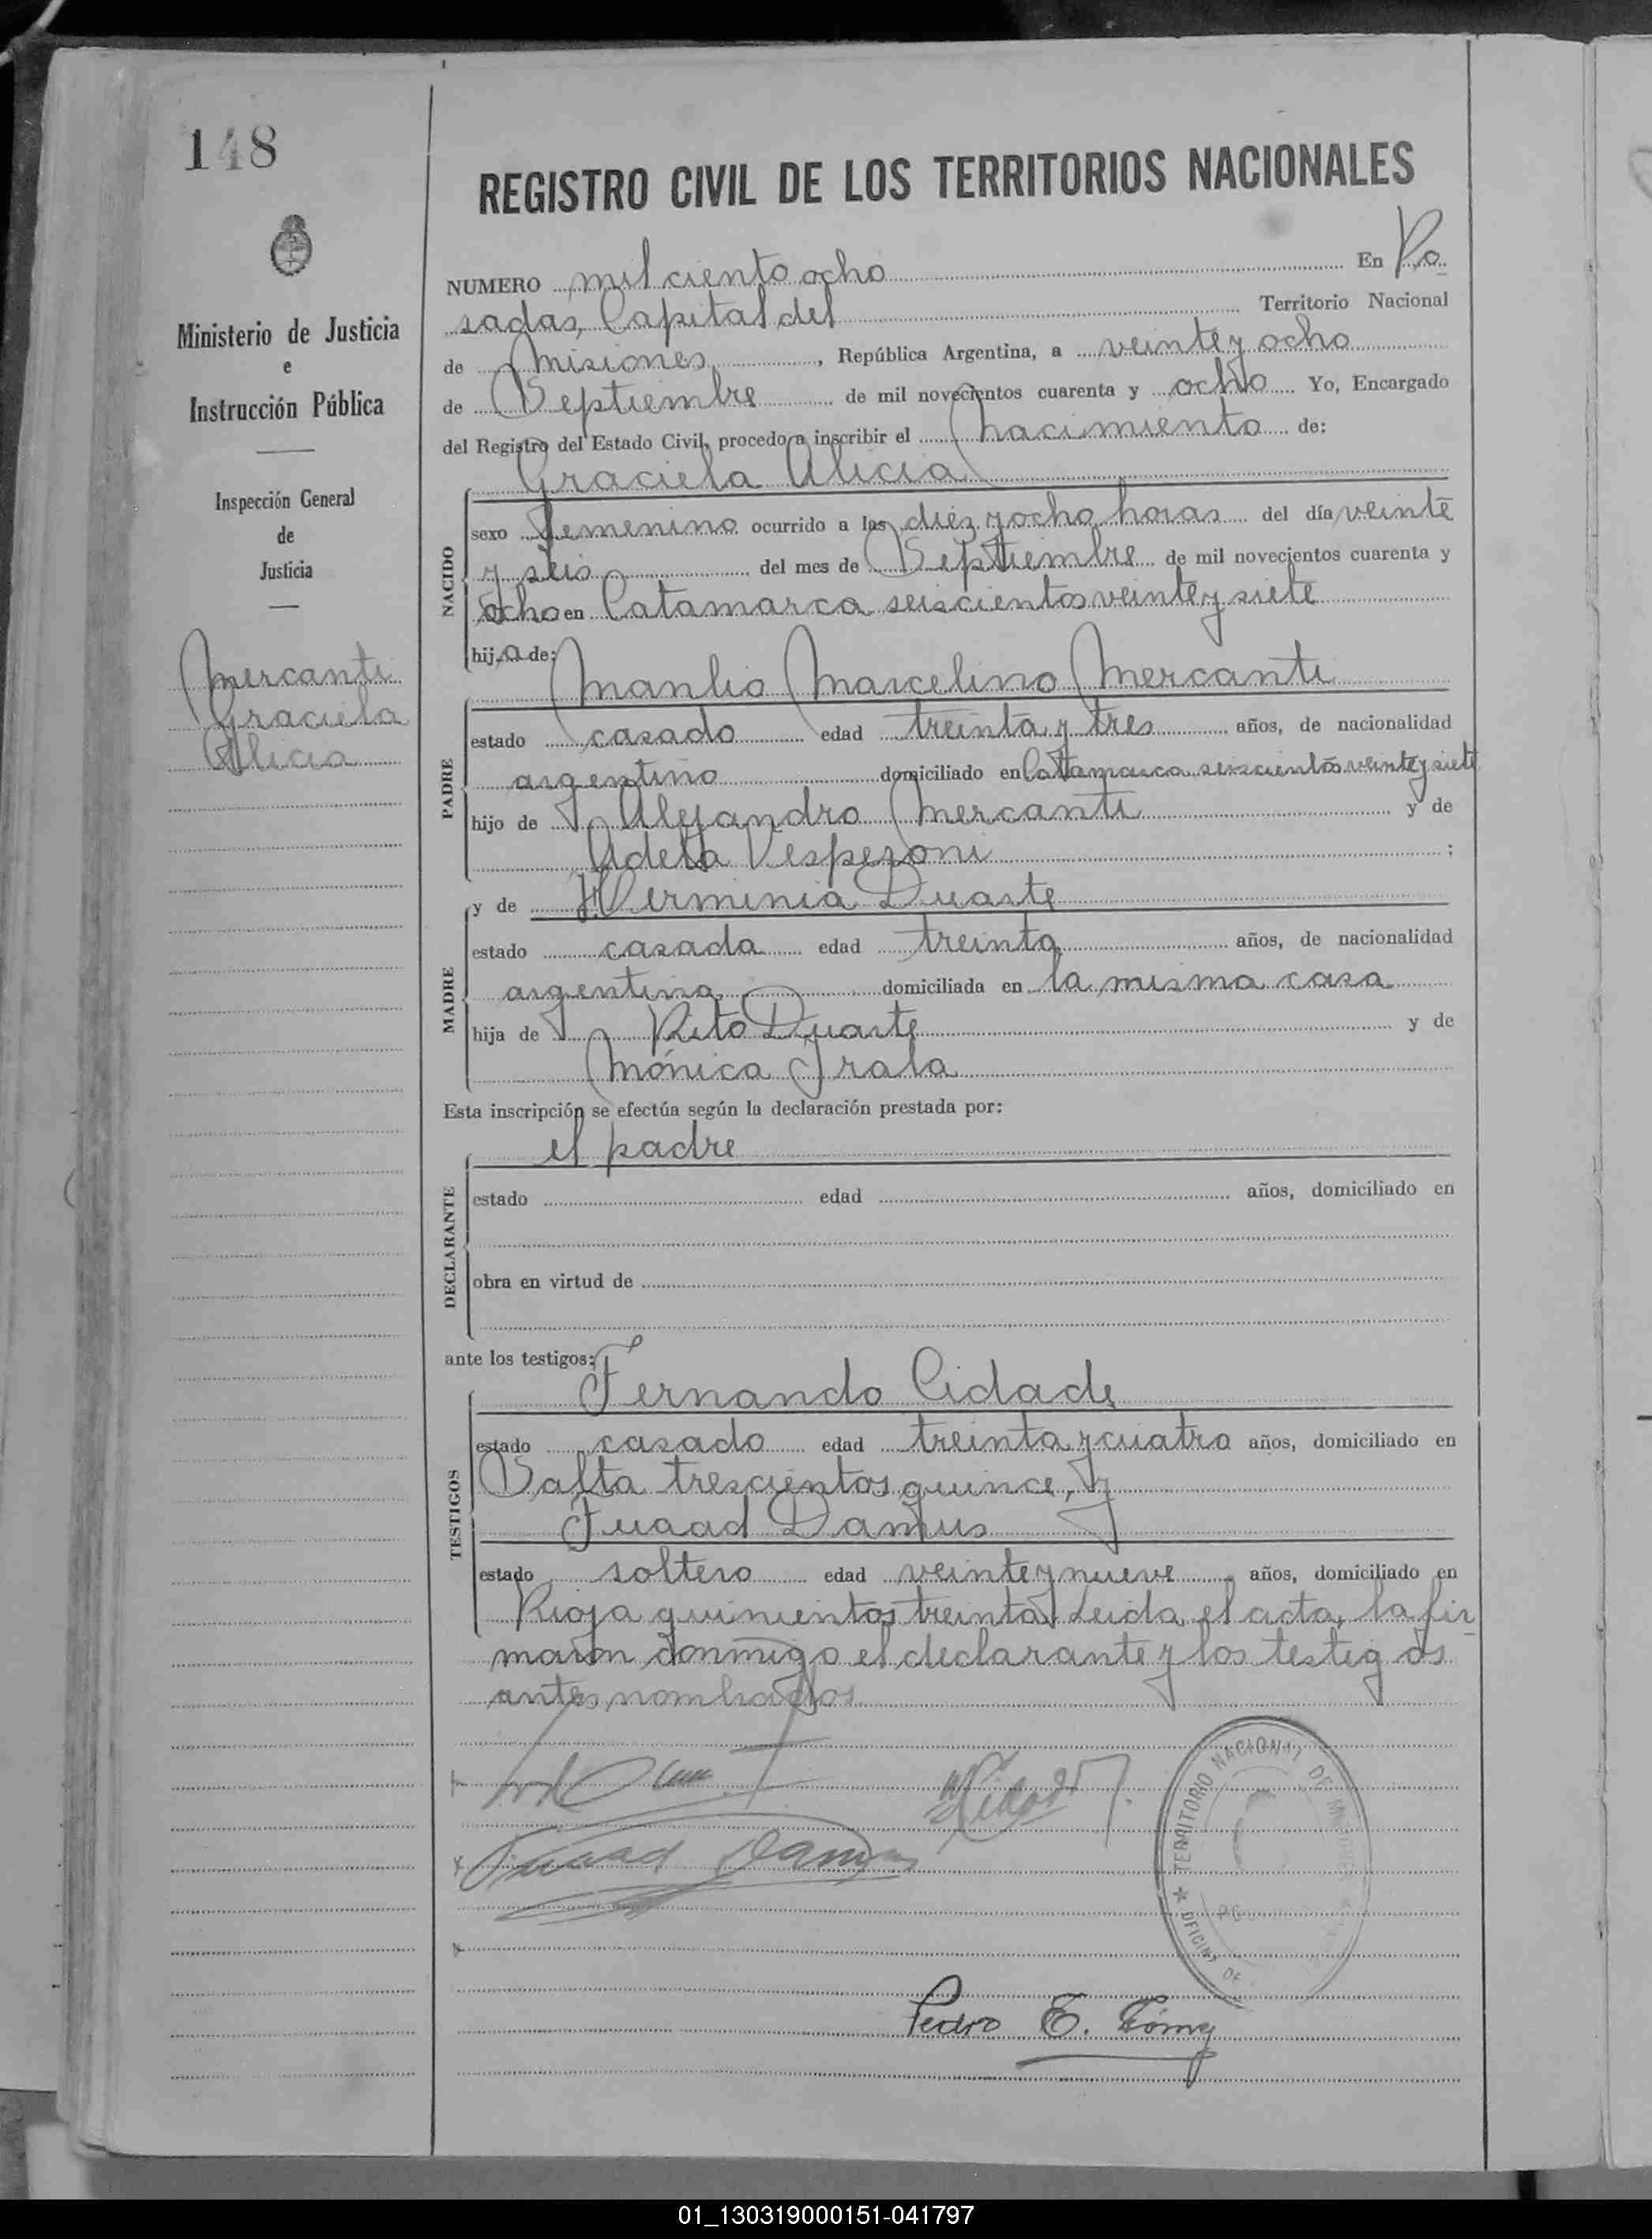 148
Ministerio de Justicia
e
Instrucción Pública
Inspección General
de
Justicia
Mercanti
Graciela
Alicia
REGISTRO CIVIL DE LOS TERRITORIOS NACIONALES
NUMERO mil ciento ocho En Po
sadas, Capital del Territorio Nacional
de Misiones, República Argentina, a veinte y ocho
de Septiembre de mil novecientos cuarenta y ocho Yo, Encargado
del Registro del Estado Civil, procedo a inscribir el nacimiento de:
Graciela Alicia
NACIDO
sexo femenino ocurrido a las diez y ocho horas del día veinte
y seis del mes de Septiembre de mil novecientos cuarenta y
ocho en Catamarca seiscientos veinte y siete
hija de:
Manlio Marcelino Mercanti
PADRE
estado casado edad treinta y tres años, de nacionalidad
argentino domiciliado en Catamarca seiscientos veinte y siete
hijo de Alejandro Mercanti y de
Adela Vesperoni ;
y de Herminia Duarte
MADRE
estado casada edad treinta años, de nacionalidad
argentina domiciliada en la misma casa
hija de Rito Duarte y de
Mónica Irala
Esta inscripción se efectúa según la declaración prestada por:
el padre
DECLARANTE
estado edad años, domiciliado en
obra en virtud de
ante los testigos:
Fernando Cidade
TESTIGOS
estado casado edad treinta y cuatro años, domiciliado en
Salta trescientos quince, y
Fuaad Damus
estado soltero edad veinte y nueve años, domiciliado en
Rioja quinientos treinta. Leida el acta, la fir-
maron conmigo el declarante y los testigos
antes nombrados
Fuaad Damus
TERRITORIO NACIONAL DE
OFICINA DE
Pedro E. Gómez
01_130319000151-041797